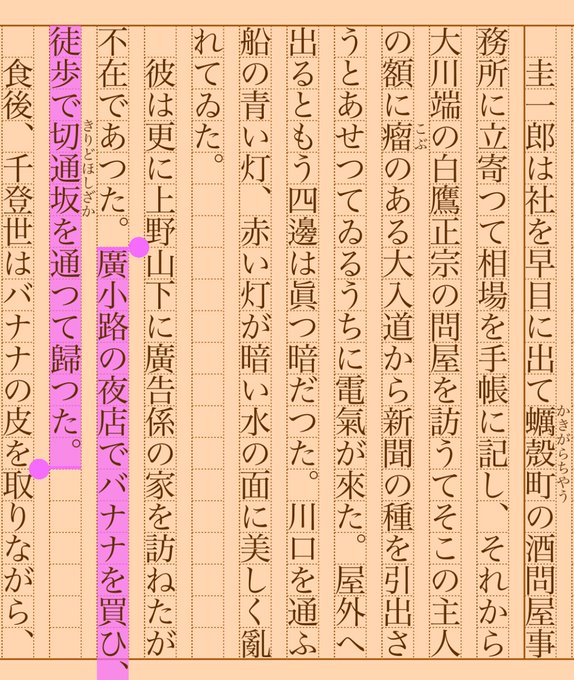 圭一郎は社を早目に出て蠣殼町の酒問屋事
かきがらちやう
務所に立寄つて相場を手帳に記し、それから
大川端の白鷹正宗の問屋を訪うてそこの主人
の額に瘤のある大入道から新聞の種を引出さ
こぶ
うとあせつてゐるうちに電氣が來た。屋外へ
出るともう四邊は眞つ暗だつた。川口を通ふ
船の青い灯、赤い灯が暗い水の面に美しく亂
れてゐた。
彼は更に上野山下に廣告係の家を訪ねたが
不在であつた。廣小路の夜店でバナナを買ひ、
徒歩で切通坂を通つて歸つた。
きりどほしざか
食後、千登世はバナナの皮を取りながら、